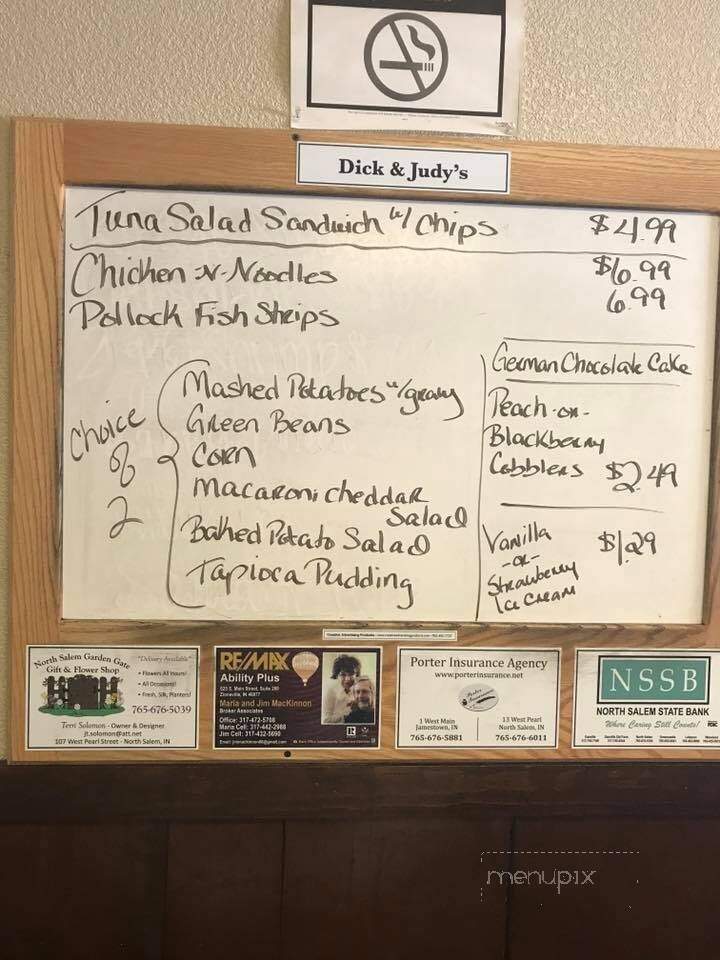 Dick & Judy's
Tuna Salad Sandwich w/ Chips $4.99
Chicken -N- Noodles $6.99
Pollock Fish Strips 6.99
Choice
of
2
Mashed Potatoes w/gravy
Green Beans
Corn
Macaroni cheddar
Salad
Baked Potato Salad
Tapioca Pudding
German Chocolate Cake
Peach -or-
Blackberry
Cobblers $2.49
Vanilla $1.29
-or-
Strawberry
Ice Cream
North Salem Garden Gate
Gift & Flower Shop
"Delivery Available"
• Flowers All Hours!
• All Occasions!
• Fresh, Silk, Planters!
765-676-5039
Terri Solomon - Owner & Designer
jt.solomon@att.net
107 West Pearl Street - North Salem, IN
RE/MAX
Ability Plus
Zionsville, IN 46077
Maria and Jim MacKinnon
Broker Associates
Office: 317-472-5708
Maria Cell: 317-442-2988
Jim Cell: 317-432-5690
Porter Insurance Agency
www.porterinsurance.net
1 West Main
Jamestown, IN
765-676-5881
13 West Pearl
North Salem, IN
765-676-6011
NSSB
NORTH SALEM STATE BANK
Where Caring Still Counts!
menupix